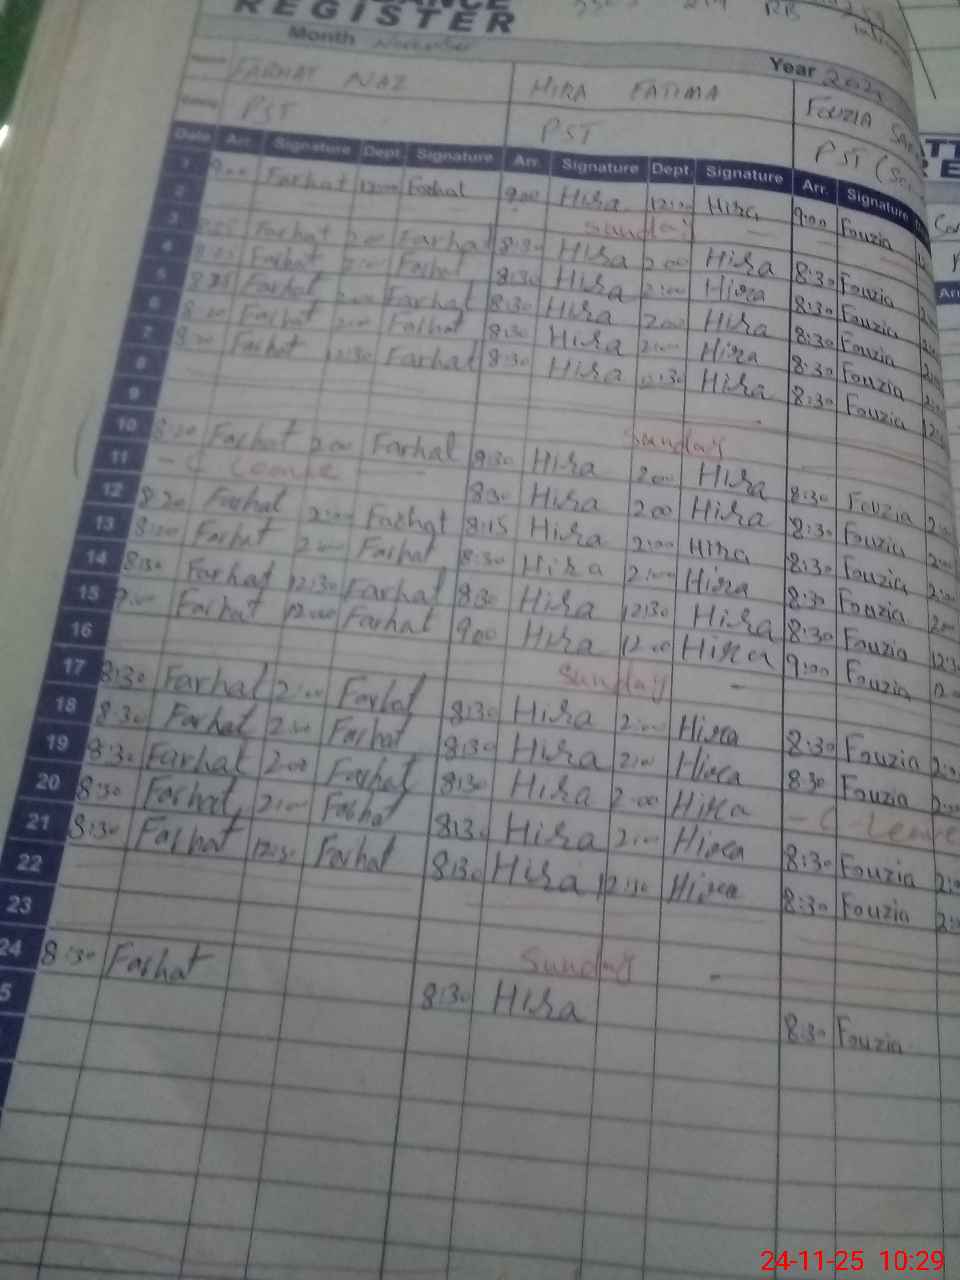 REGISTER
Month November
Year
FARHAT NAZ HIRA FATIMA FOUZIA
PST PST PST
Date Arr. Signature Dept. Signature Arr. Signature Dept. Signature Arr. Signature
1 9:00 Farhat 12:00 Farhat 9:00 Hira Hira 9:00 Fouzia
2 Sunday
3 Farhat 2:00 Farhat 8:30 Hira 2:00 Hira 8:30 Fouzia
4 Farhat 2:00 Farhat 8:30 Hira 2:00 Hira 8:30 Fouzia
5 8:25 Farhat 2:00 Farhat 8:30 Hira 2:00 Hira 8:30 Fouzia
6 8:20 Farhat 2:00 Farhat 8:30 Hira 2:00 Hira 8:30 Fouzia
7 8:20 Farhat 12:30 Farhat 8:30 Hira 12:30 Hira 8:30 Fouzia
8
9 Sunday
10 8:20 Farhat 2:00 Farhat 8:30 Hira 2:00 Hira 8:30 Fouzia
11 - C Leave - 8:30 Hira 2:00 Hira 8:30 Fouzia
12 8:20 Farhat 2:00 Farhat 8:15 Hira 2:00 Hira 8:30 Fouzia
13 8:20 Farhat 2:00 Farhat 8:30 Hira 2:00 Hira 8:30 Fouzia
14 8:30 Farhat 12:30 Farhat 8:30 Hira 12:30 Hira 8:30 Fouzia
15 9:00 Farhat 12:00 Farhat 9:00 Hira 12:00 Hira 9:00 Fouzia
16 Sunday -
17 8:30 Farhat 2:00 Farhat 8:30 Hira 2:00 Hira 8:30 Fouzia
18 8:30 Farhat 2:00 Farhat 8:30 Hira 2:00 Hira 8:30 Fouzia
19 8:30 Farhat 2:00 Farhat 8:30 Hira 2:00 Hira - C Leave
20 8:30 Farhat 2:00 Farhat 8:30 Hira 2:00 Hira 8:30 Fouzia
21 8:30 Farhat 12:30 Farhat 8:30 Hira 12:30 Hira 8:30 Fouzia
22
23 Sunday -
24 8:30 Farhat 8:30 Hira 8:30 Fouzia
24-11-25 10:29